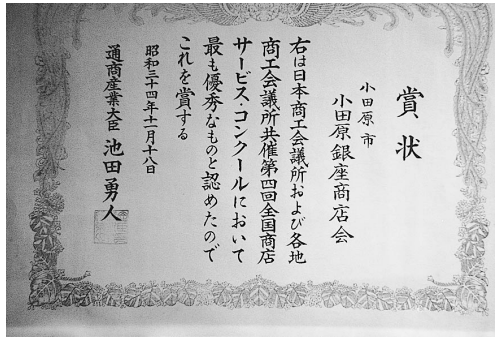 賞状
小田原市
小田原銀座商店会
右は日本商工会議所および各地
商工会議所共催第四回全国商店
サービス・コンクールにおいて
最も優秀なものと認めたので
これを賞する
昭和三十四年十二月十八日
通商産業大臣 池田勇人